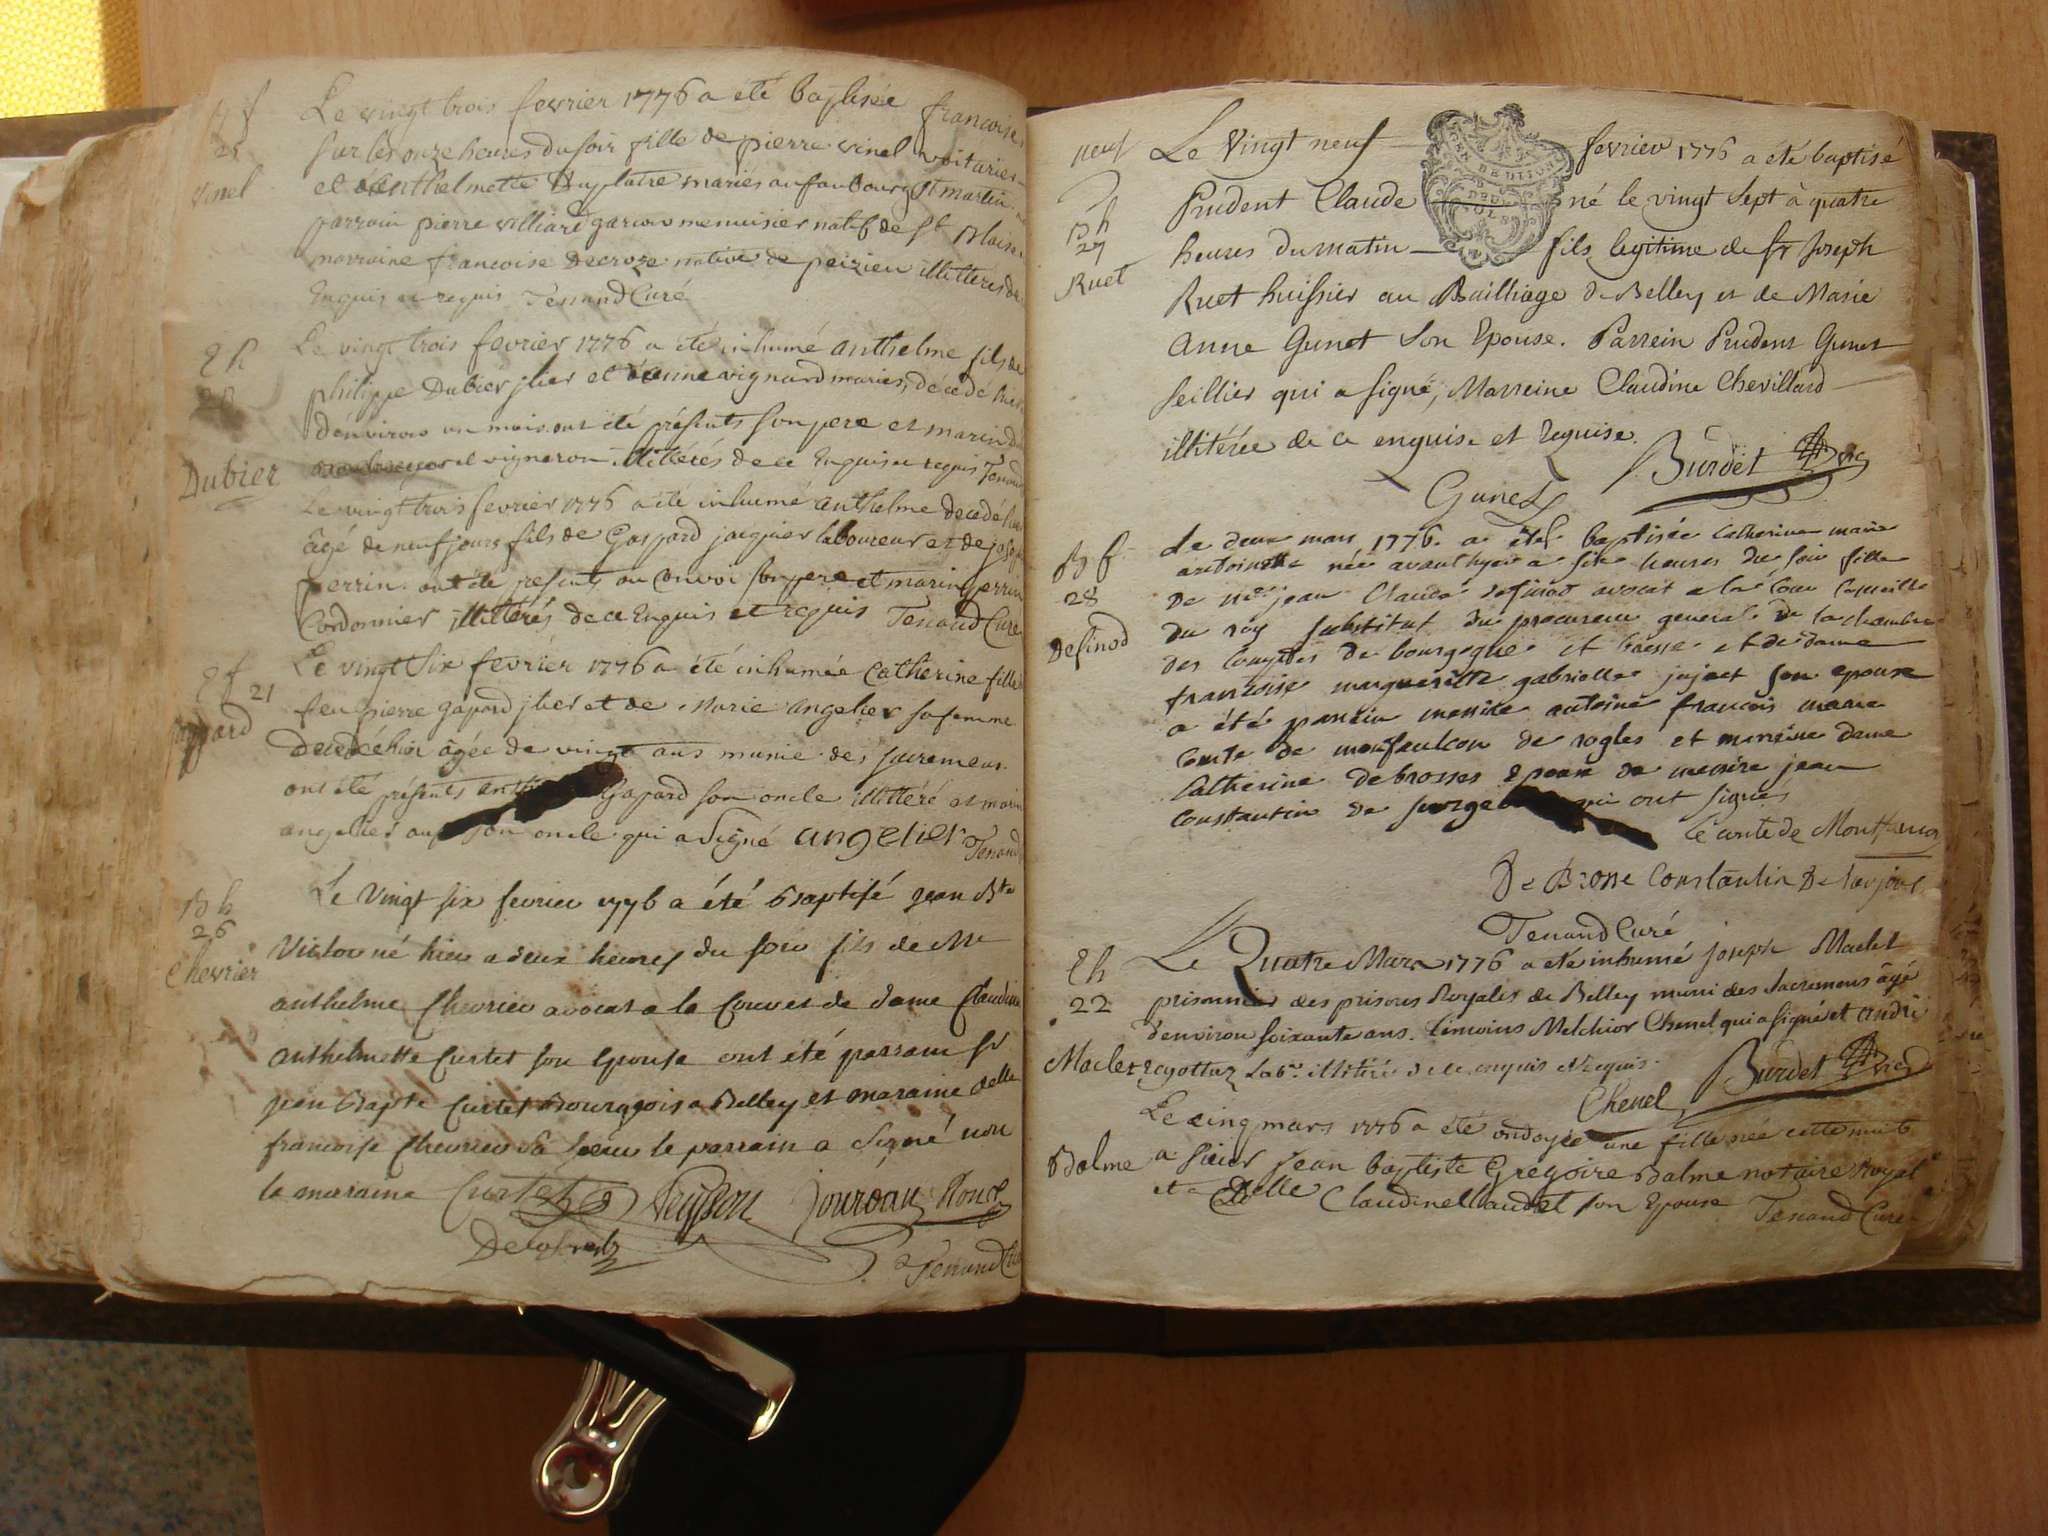 B f
25
Vinel
Le vingt trois fevrier 1776 a été baptisée francoise
sur les onze heures du soir fille de pierre vinel voiturier
et d'Anthelmette Duplatre mariés au faubourg st martin.
parrain pierre villiard garcon menuisier natif de st Blaise
marraine francoise Decroze native de peizieu illitteres de
Enquis et requis Tenand Curé
Dubier
Le vingt trois fevrier 1776 a été inhumé anthelme fils de
philippe Dubier jlier et d'anne vignard mariés, décedé hier
d'environ un mois. ont été présents son pere et marin
vigneron illittérés de ce Enquis et requis Tenand
Le vingt trois fevrier 1776 a été inhumé anthelme decedé hier
âgé de neuf jours fils de Gaspard jaiquier laboureur et de
perrin. ont été présents au convoi son pere et marin perrin
Cordonnier illittérés de ce Enquis et requis Tenand Curé
21
Le vingt Six fevrier 1776 a été inhumée Catherine fille
feu pierre gapard jlier et de Marie angelier sa femme
decedée hier âgée de vingt ans munie des sacremens.
ont été présents Gapard son oncle illittéré et
angelier son oncle qui a signé angelier Tenand
B h
26
Chevrier
Le Vingt six fevrier 1776 a été Baptisé jean Bte
Victor né hier a deux heures du soir fils de Me
anthelme Chevrier avocat a la Cour et de dame Claudine
anthelmette Curtet son Epouse ont été parrain sr
jean Bapte Curtet Bourgeois a Belley et maraine delle
francoise Chevrier sa soeur le parrain a signé non
la maraine Curtet Peysson Jourdan
Tenand Curé
neuf
B h
27
Ruet
Le Vingt neuf fevrier 1776 a été baptisé
Prudent Claude né le vingt sept à quatre
heures du matin fils legitime de sr joseph
Ruet huissier au Bailliage de Belley et de Marie
Anne Gunet son Epouse. Parrein Prudent Gunet
seillier qui a signé, Marreine Claudine Chevillard
illitérée de ce enquise et requise.
Gunet Burdet Vic
B f
28
Definod
Le deux mars 1776. a été baptisée catherine marie
antoinette née avant hyer a six heures du soir fille
de mre jean Claude definod avocat a la Cour Conseiller
du roy substitut du procureur general de la chambre
des Comptes de bourgogne et bresse et de dame
francoise margueritte gabrielle jujat son epouse
a été parrein messire antoine francois marie
comte de monfaulcon de rogles et marreine dame
Catherine debrosses Epouse de messire jean
Constantin de qui ont signés
Le comte de Montfaucon
De Brosse Constantin De
Tenand Curé
22
Maclet
Le Quatre Mars 1776 a été inhumé joseph Maclet
prisonnier des prisons Royales de Belley muni des Sacremens âgé
d'environ soixante ans. Témoins Melchior Chenel qui a signé et andré
illitéré de ce enquis et requis.
Chenel Burdet Vic
Balme
Le cinq mars 1776 a été ondoyée une fille née cette nuit
a sieur jean baptiste Gregoire Balme notaire Royal
et a Delle Claudine son Epouse Tenand Curé